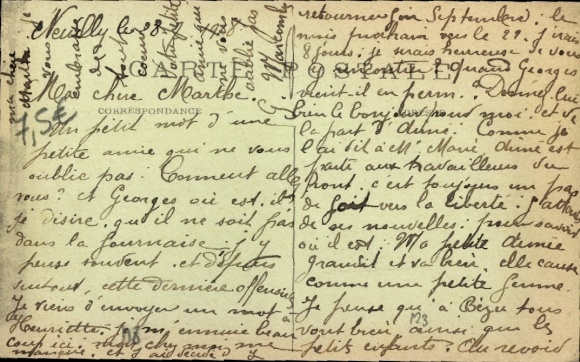 Neuilly le 28
CARTE POSTALE
CORRESPONDANCE
7,5€
Ma chère Marthe.
Un petit mot d'une
petite amie qui ne vous
oublie pas. Comment allez
vous? et Georges où est-il
je désire qu'il ne soit pas
dans la fournaise j'y
pense souvent et depuis
surtout cette dernière offensive
Je viens d'envoyer un mot à
Henriette. m'ennuie beau
coup ici. mon chez moi me
manque, et
retourner fin Septembre. le
mois prochain vers le 29 j'irais
8 jours; je serais heureuse de vous
quand Georges
vient il en perm. Donnez lui
bien le bonjour pour moi et de
la part d'Aimé. Comme je
l'ai dit à Mme Marie Aimé est
aux travailleurs du
front, c'est toujours un pas
de fait vers la liberté. J'attends
de ses nouvelles pour savoir
où il est. Ma petite Aimée
grandit et va bien, elle cause
comme une petite femme.
Je pense que à Bèze tous
vont bien ainsi que les
petits enfants. Au revoir
ma chère
Marthe
vous
embrasse
de
tout
coeur
Votre petite
amie qui
ne vous
oublie pas